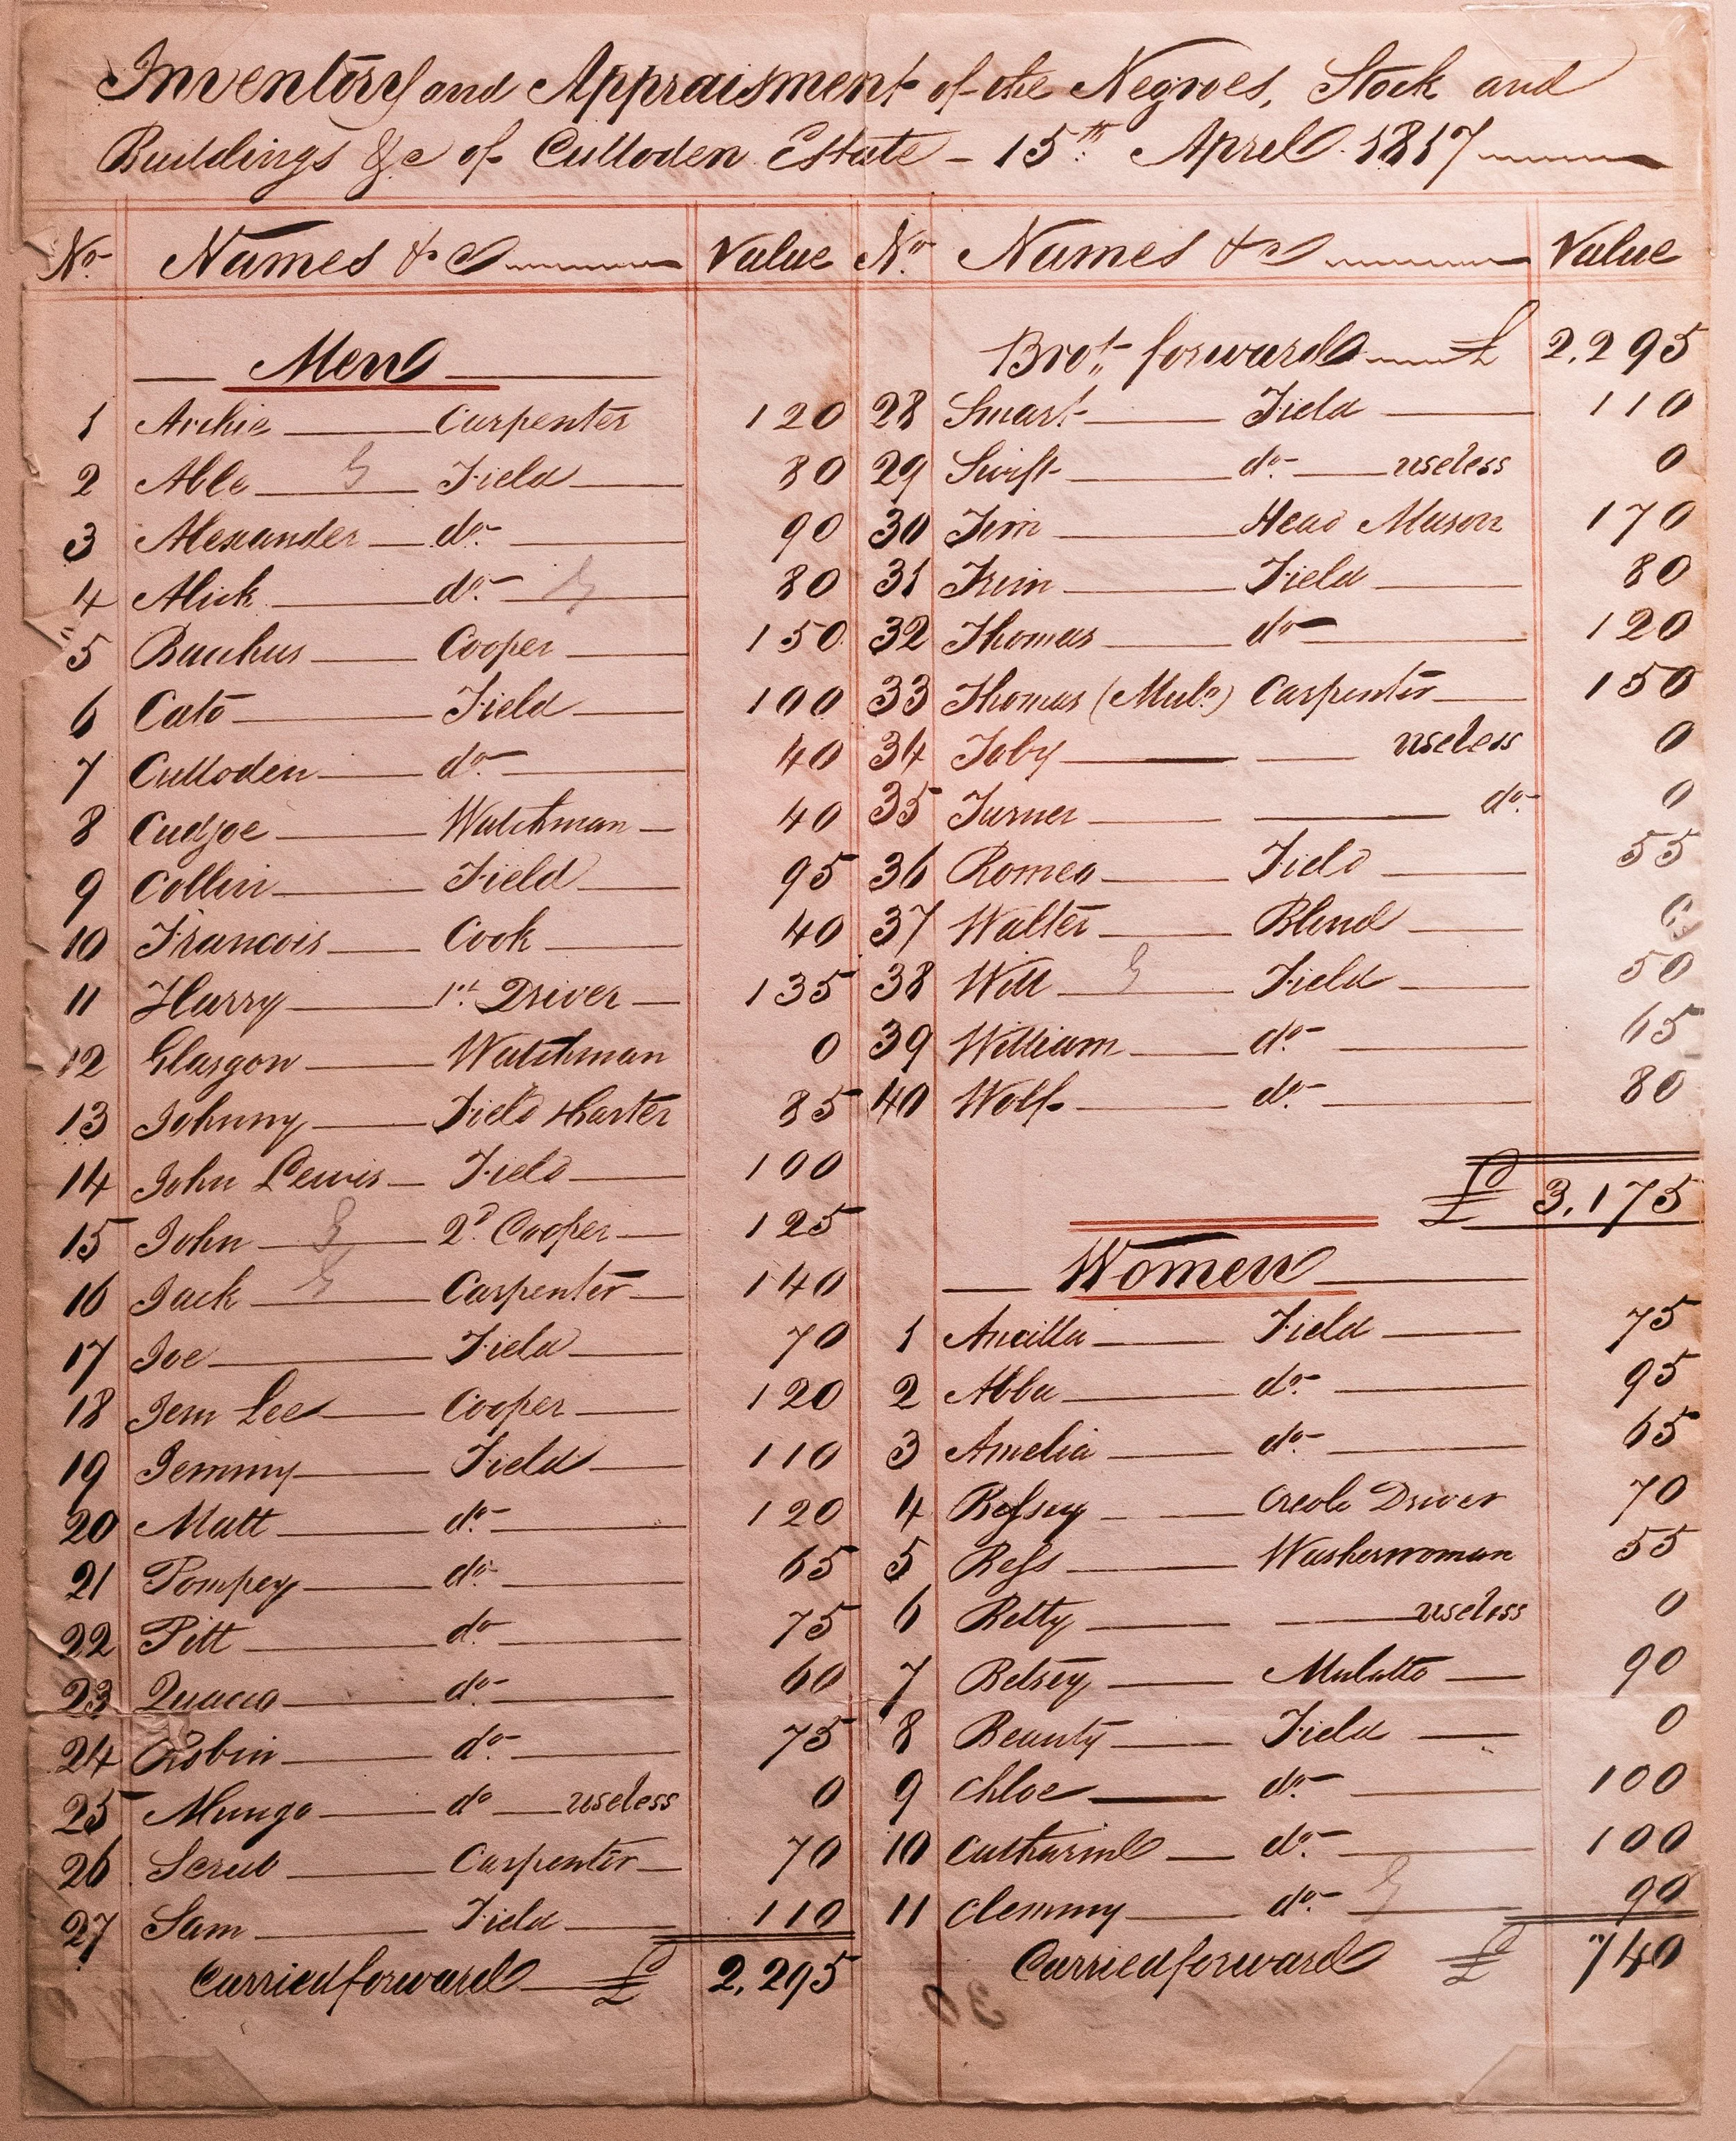 Inventory and Appraisment of the Negroes, Stock and
Buildings &c of Culloden Estate - 15th April 1817
No. Names &c Value
Men
1 Archie Carpenter 120
2 Able Field 80
3 Alexander do. 90
4 Alick do. 80
5 Bacchus Cooper 150
6 Cato Field 100
7 Culloden do. 40
8 Cudjoe Watchman 40
9 Collin Field 95
10 Francois Cook 40
11 Harry 1st Driver 135
12 Glasgow Watchman 0
13 Johnny Field 85
14 John Lewis Field 100
15 John 2d Cooper 125
16 Jack Carpenter 140
17 Joe Field 70
18 Jem Lee Cooper 120
19 Jemmy Field 110
20 Matt do. 120
21 Pompey do. 65
22 Pitt do 75
23 Quaco do. 60
24 Robin do. 75
25 Mungo do useless 0
26 Scrub Carpenter 70
27 Sam Field 110
Carried forward £ 2,295
No. Names &c Value
Brot. forward £ 2,295
28 Smart Field 110
29 Swift do. useless 0
30 Tim Head Mason 170
31 Trim Field 80
32 Thomas do 120
33 Thomas (Mulo.) Carpenter 150
34 Toby useless 0
35 Turner do. 0
36 Romeo Field 55
37 Walter Blind 0
38 Will Field 50
39 William do. 65
40 Wolf do. 80
£ 3,175
Women
1 Ancilla Field 75
2 Abba do. 95
3 Amelia do. 65
4 Bessey Creole Driver 70
5 Bess Washerwoman 55
6 Betty useless 0
7 Betsey Mulatto 90
8 Beauty Field 0
9 Chloe do. 100
10 Catharine do. 100
11 Clemmy do. 90
Carried forward £ 740